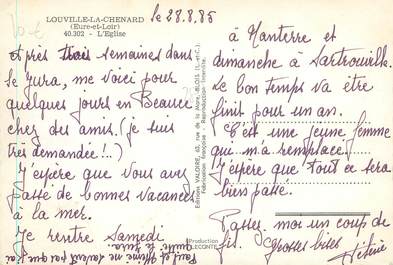 LOUVILLE-LA-CHENARD
(Eure-et-Loir)
40.302 - L'Eglise
le 28.8.85
et près trois semaines dans
le Jura, me voici pour
quelques jours en Beauce
chez des amis. (je suis
très demandée !...)
J'espère que vous avez
passé de bonnes vacances
à la mer.
Je rentre samedi
à Nanterre et
dimanche à Sartrouville.
Le bon temps va être
fini pour un an.
C'est une jeune femme
qui m'a remplacée.
J'espère que tout ce sera
bien passé.
Passez-moi un coup de
fil. Grosses bises
Editions VALOIRE, 63, rue de la Mare, BLOIS (L.-et-C.)
Fabrication française - Reproduction interdite.
Production
LECONTE
Paul et ne savent pas que j'ai
quitté le Jura.